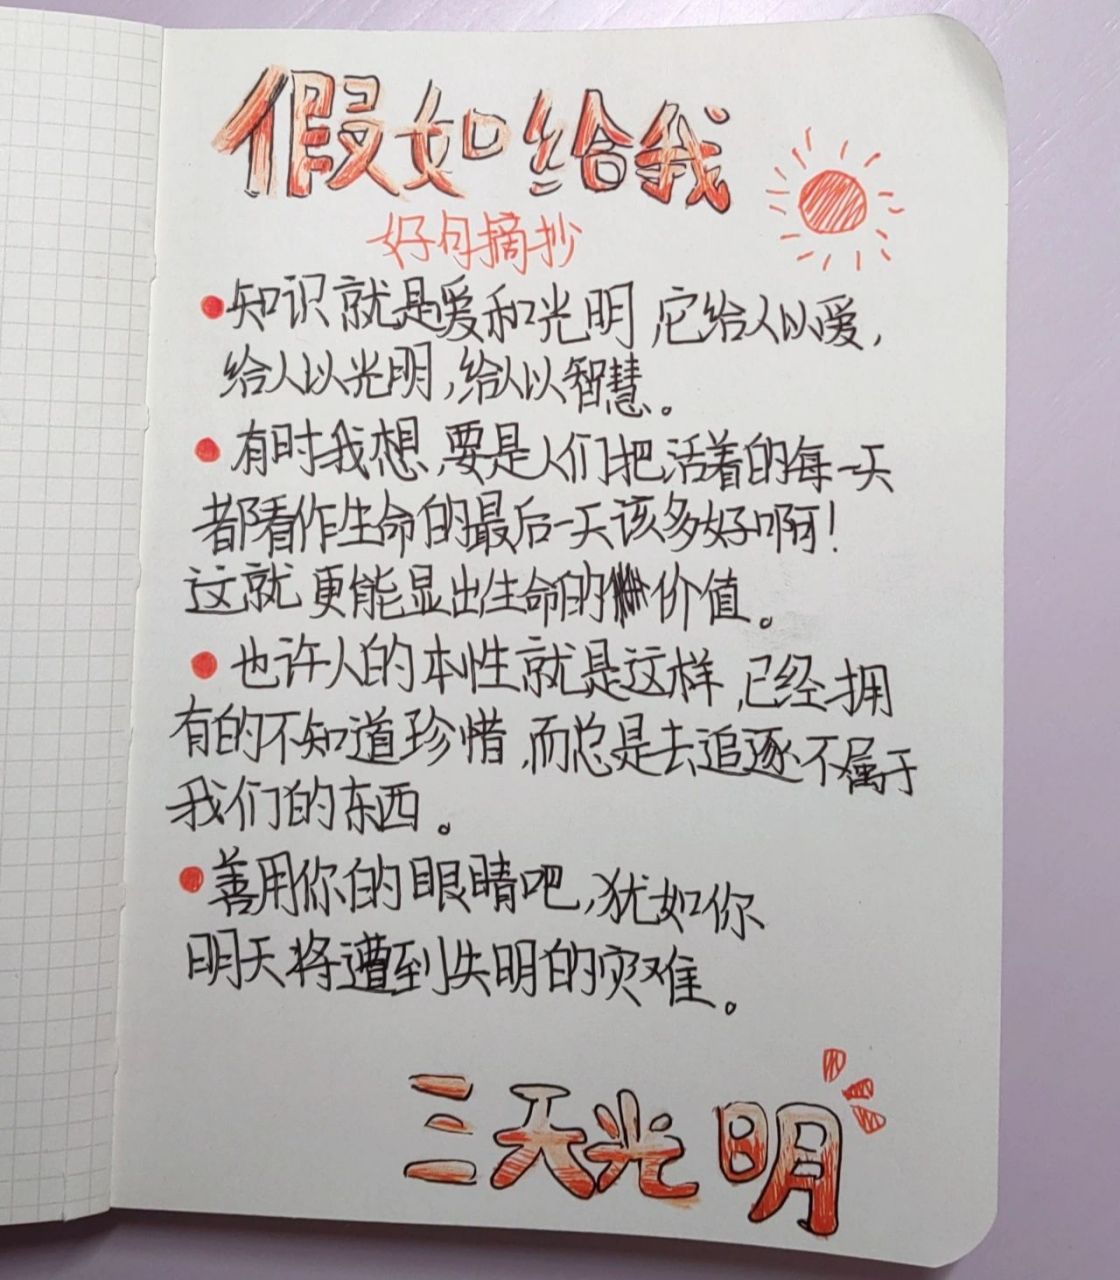 假如给我
好句摘抄
•知识就是爱和光明,它给人以爱,
给人以光明,给人以智慧。
•有时我想,要是人们把活着的每一天
都看作生命的最后一天该多好啊!
这就更能显出生命的价值。
•也许人的本性就是这样,已经拥
有的不知道珍惜,而总是去追逐不属于
我们的东西。
•善用你的眼睛吧,犹如你
明天将遭到失明的灾难。
三天光明